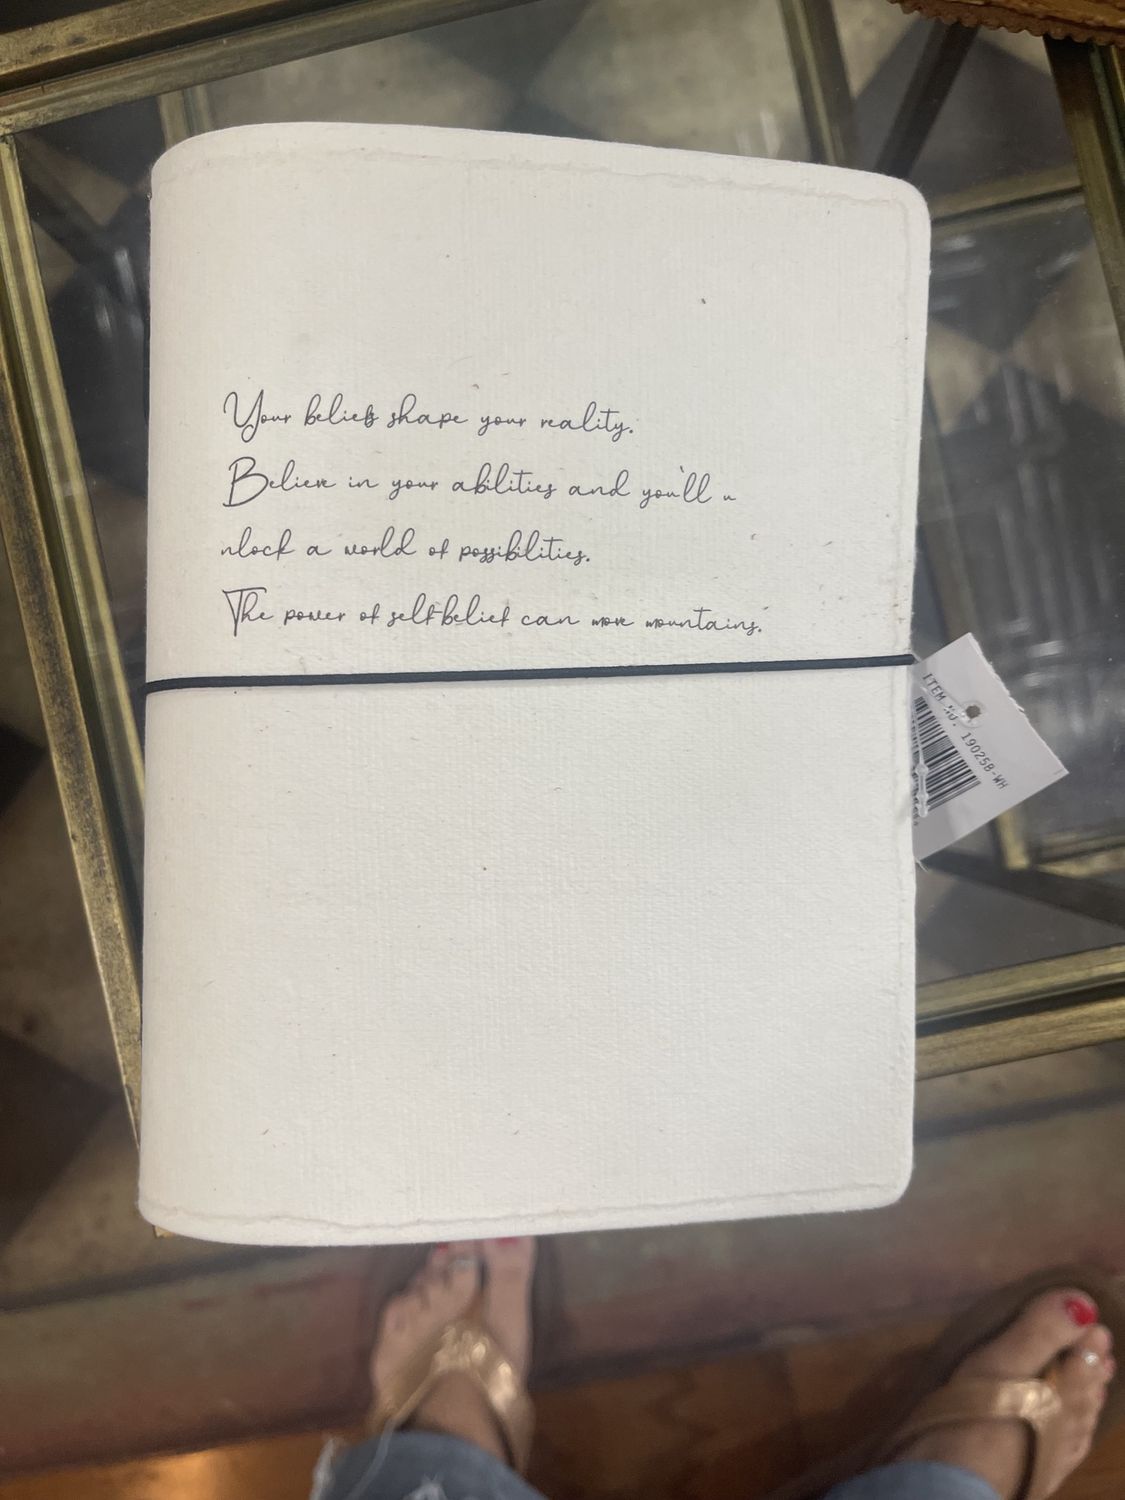 Your beliefs shape your reality.
Believe in your abilities and you'll u
nlock a world of possibilities.
The power of self-belief can move mountains.
ITEM NO. 190258-WH